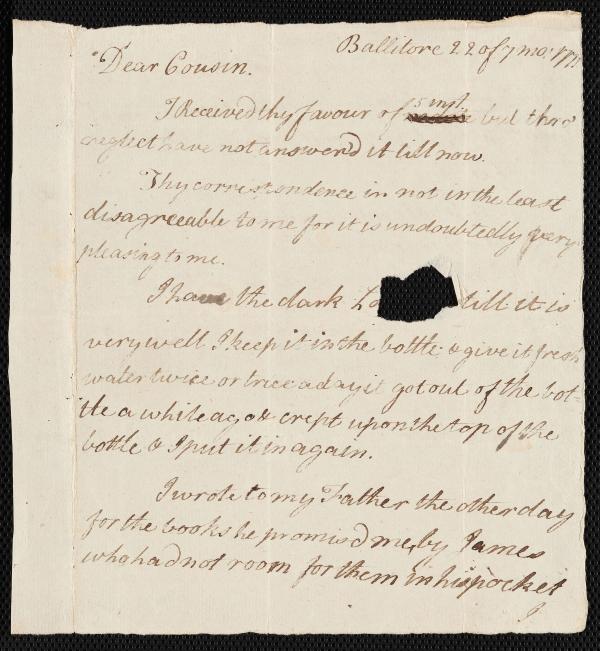 Ballitore 22 of 7 mo: 177
Dear Cousin.
5 inst.
I Received thy favour of but thro
neglect have not answer'd it till now.
Thy correspondence in not in the least
disagreeable to me for it is undoubtedly very
pleasing to me.
I have the dark Lo till it is
very well I keep it in the bottle & give it fresh
water twice or trice a day it got out of the bot-
tle a while ago & crept upon the top of the
bottle & I put it in again.
I wrote to my Father the other day
for the books he promis'd me, by James
who had not room for them in his pocket